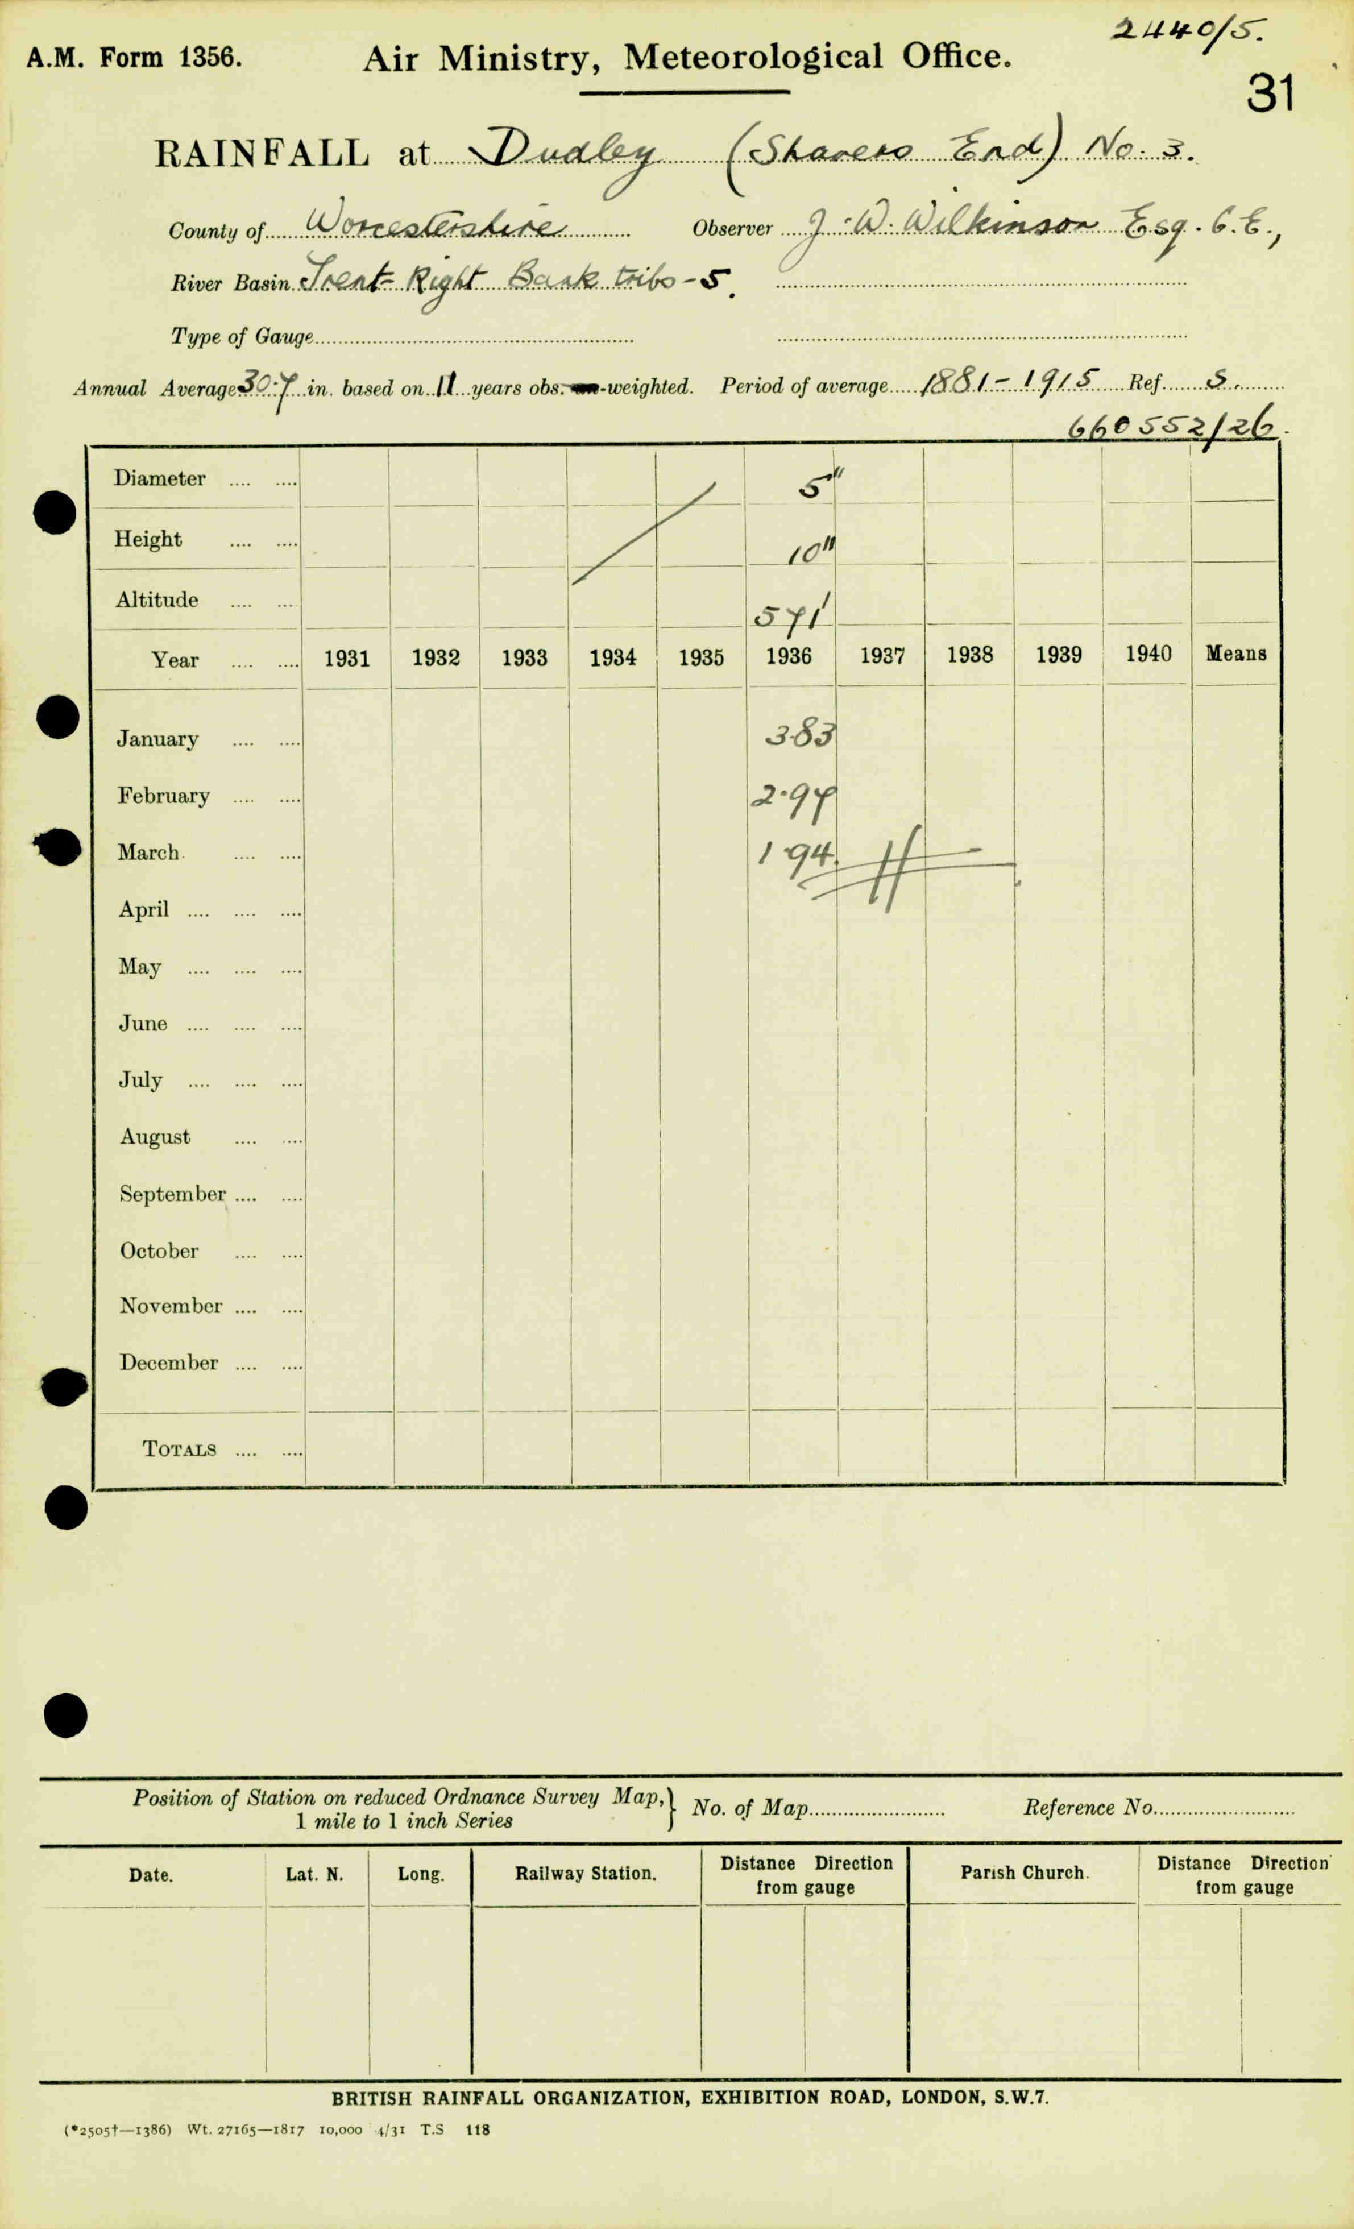 2440/5.
A.M. Form 1356. Air Ministry, Meteorological Office.
31
RAINFALL at Dudley (Shavers End) No. 3.
County of Worcestershire Observer J. W. Wilkinson Esq. C.E.,
River Basin Trent-Right Bank tribs-5.
Type of Gauge
Annual Average 30.7 in. based on 11 years obs. -weighted. Period of average 1881-1915 Ref. S.
660552/26.
Diameter 5"
Height 10"
Altitude 571'
Year 1931 1932 1933 1934 1935 1936 1937 1938 1939 1940 Means
January 3.83
February 2.97
March 1.94
April
May
June
July
August
September
October
November
December
TOTALS
Position of Station on reduced Ordnance Survey Map,
1 mile to 1 inch Series } No. of Map Reference No.
Date. Lat. N. Long. Railway Station. Distance Direction from gauge Parish Church. Distance Direction from gauge
BRITISH RAINFALL ORGANIZATION, EXHIBITION ROAD, LONDON, S.W.7.
(*2505†—1386) Wt. 27165—1817 10,000 4/31 T.S 118